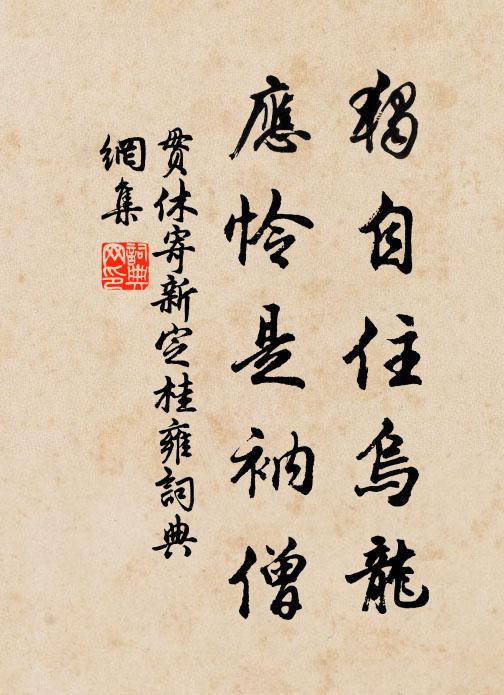 獨自住烏龍
應憐是衲僧
貫休寄新定桂雍詞典
網集
詞典網印